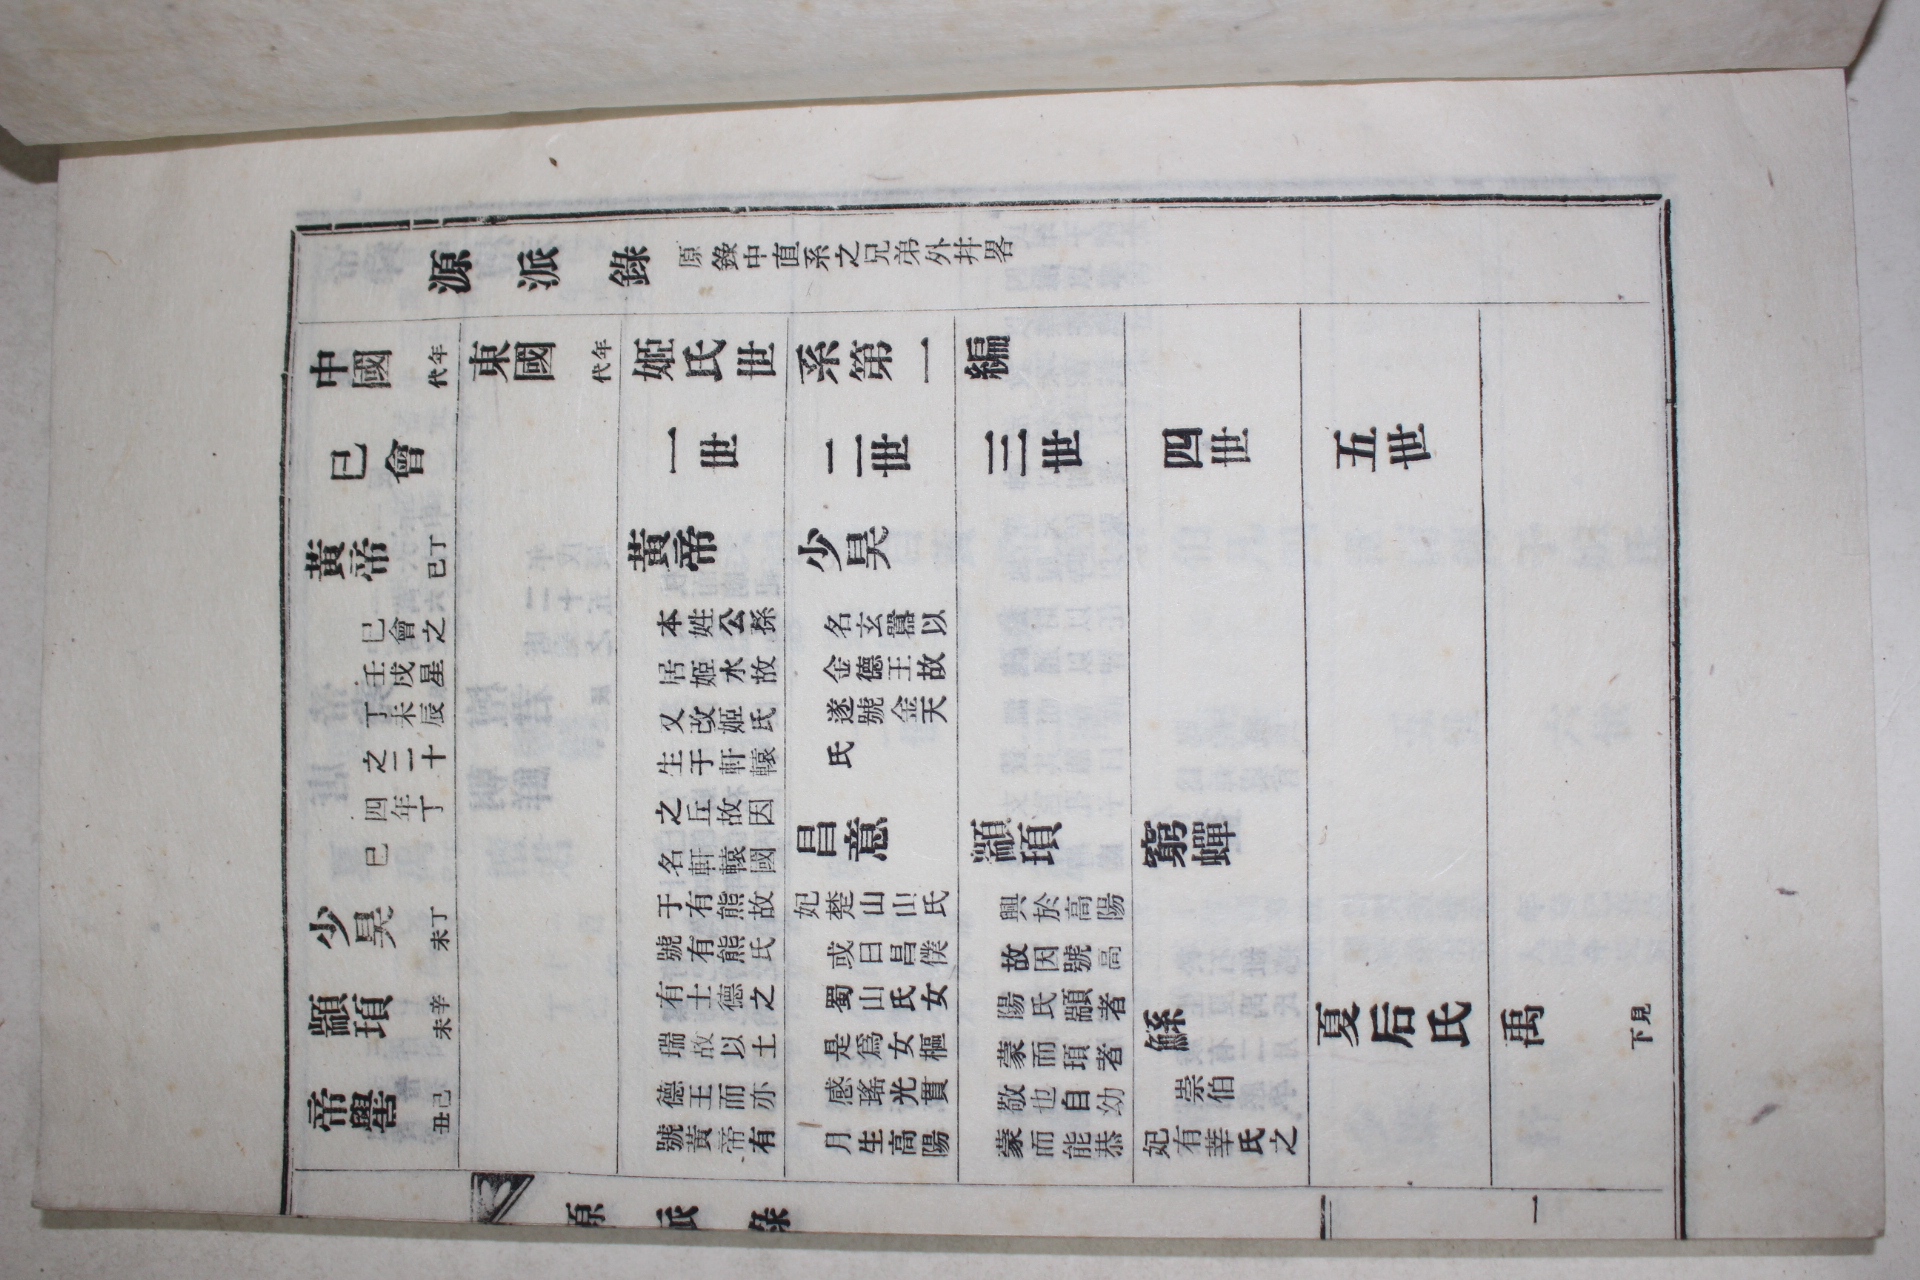 源派錄 原錄中直系之兄弟外幷畧
中國年代
東國年代
姬氏世系第一編
巳會
一世
二世
三世
四世
五世
黃帝丁巳
巳會之
壬戌星
丁未辰
之二十
四年丁
巳
少昊丁未
顓頊辛未
帝嚳己丑
黃帝
本姓公孫
居姬水故
又改姬氏
生于軒轅
之丘故因
名軒轅國
于有熊故
號有熊氏
有士德之
瑞故以土
德王而亦
號黃帝有
少昊
名玄囂以
金德王故
遂號金天
氏
昌意
妃楚山山氏
或曰昌僕
蜀山氏女
是爲女樞
感瑤光貫
月生高陽
顓頊
興於高陽
故因號高
陽氏顓者
蒙而頊者
敬也自幼
蒙而能恭
窮蟬
鯀
崇伯
妃有莘氏之
夏后氏
禹見下
源派錄
一